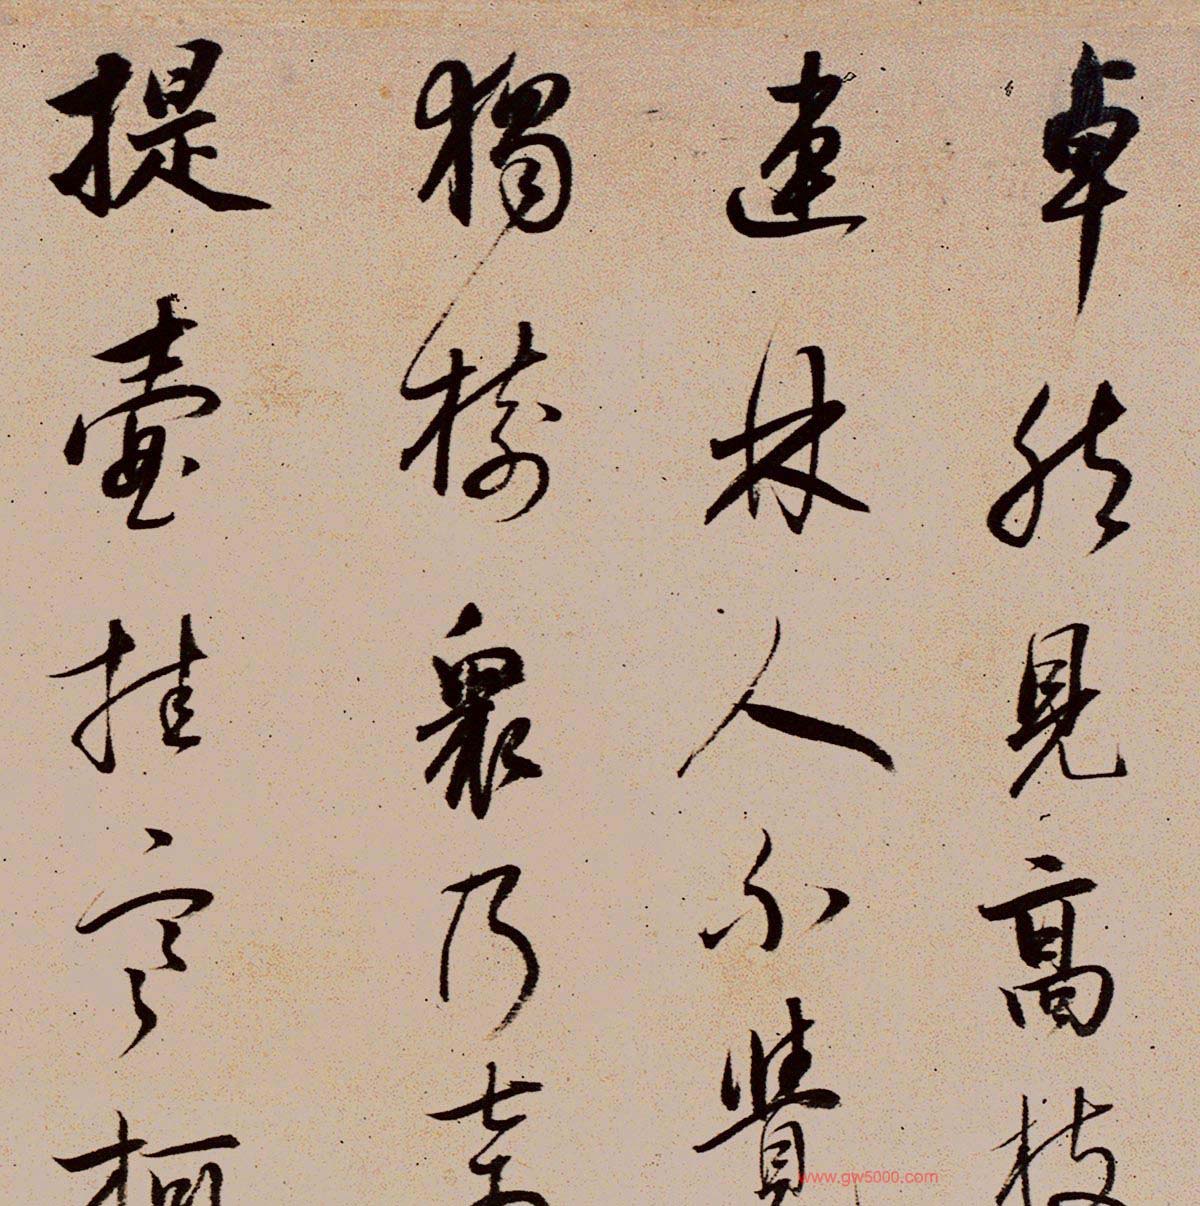 卓然見高枝
連林人不覺
獨樹眾乃奇
提壺挂寒柯
www.gw5000.com